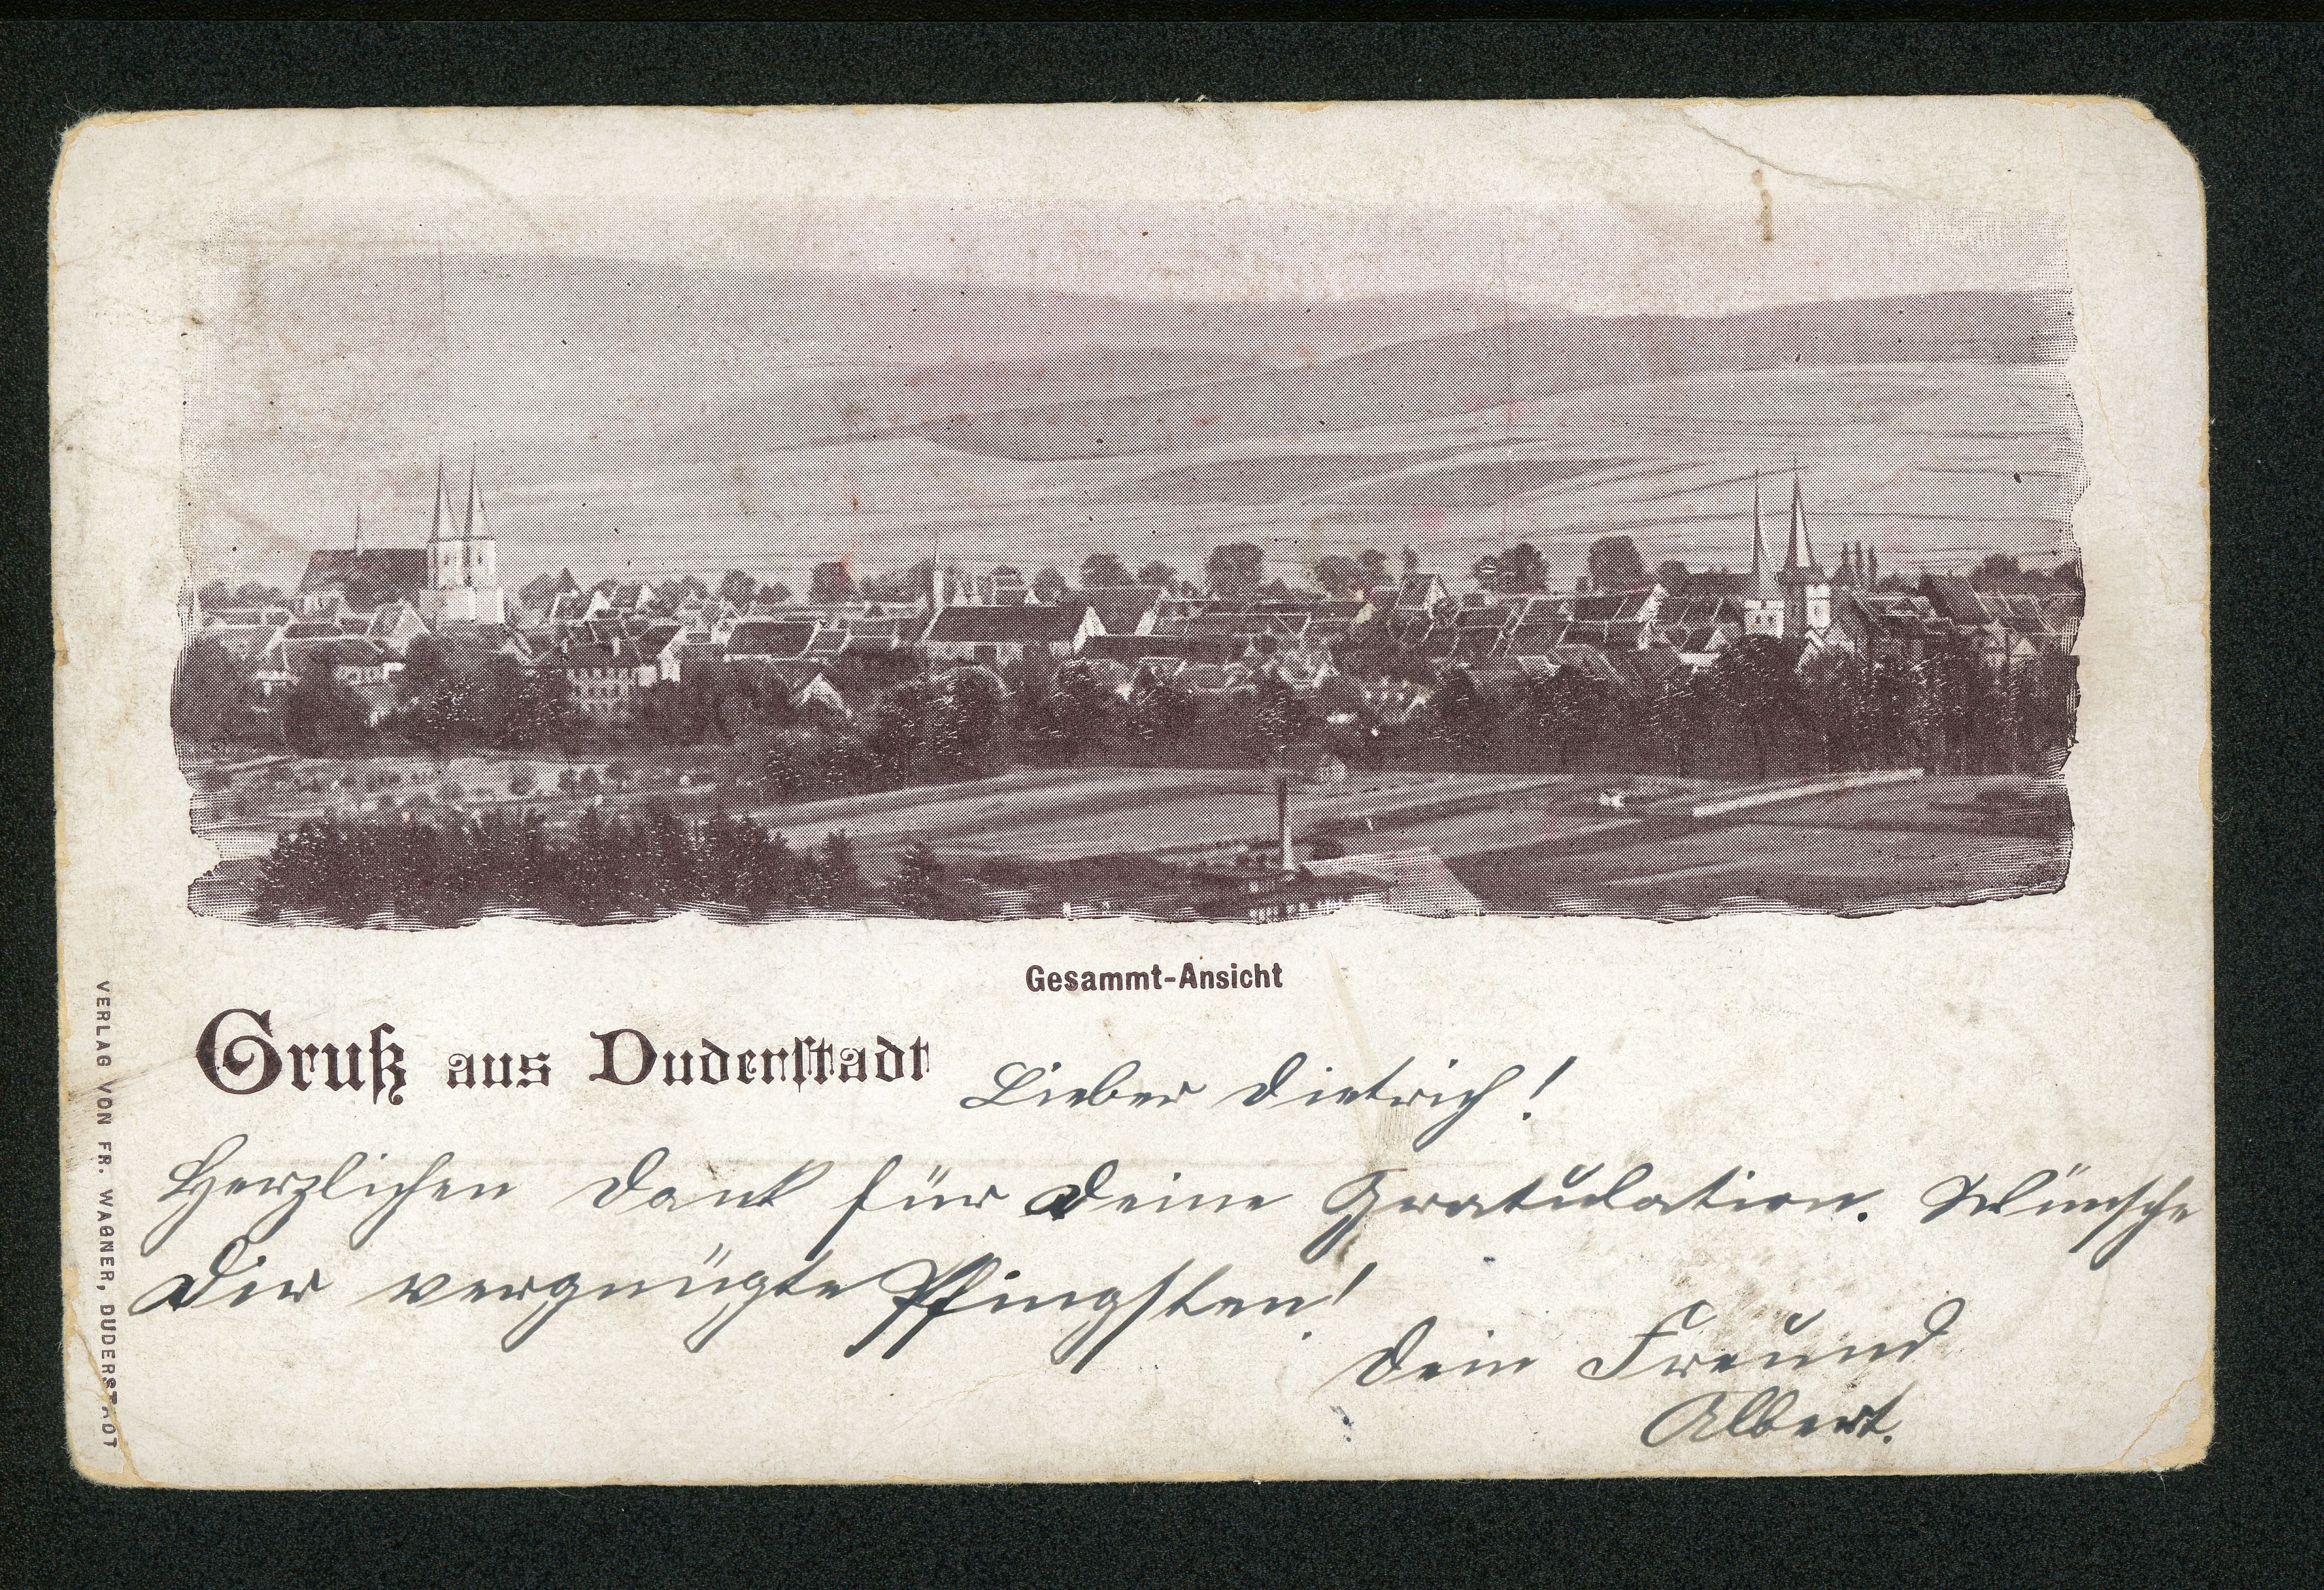 Gesammt-Ansicht
Gruß aus Duderstadt
Lieber Dietrich!
Herzlichen Dank für Deine Gratulation. Wünsche
Dir vergnügte Pfingsten!
Dein Freund
Albert.
VERLAG VON FR. WAGNER, DUDERSTADT